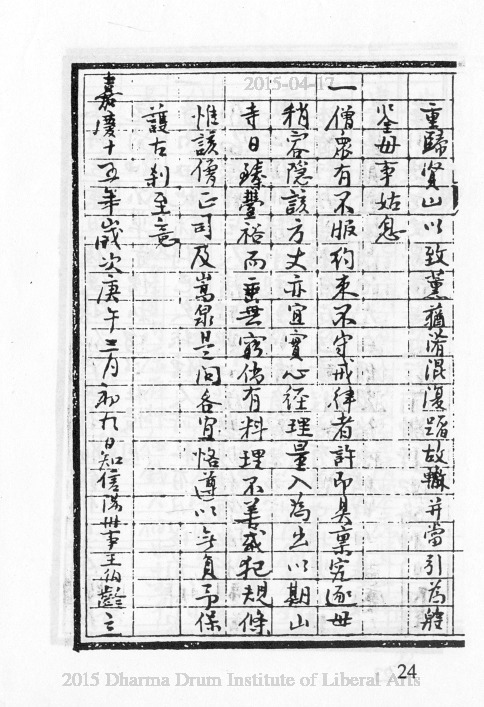 2015-04-17
重歸賢山以致薰蕕淆混復蹈故轍并當引為殷
鉴毋事姑息
一僧眾有不服約束不守戒律者許即具稟究逐毋
稍容隐該方丈亦宜實心經理量入為出以期山
寺日臻豐裕而垂無窮倘有料理不善或犯規條
惟該僧正司及嵩泉是问各宜恪遵以無負予保
護古刹至意
嘉慶十五年歲次庚午三月初九日知信陽州事王伯齡立
24
2015 Dharma Drum Institute of Liberal Arts